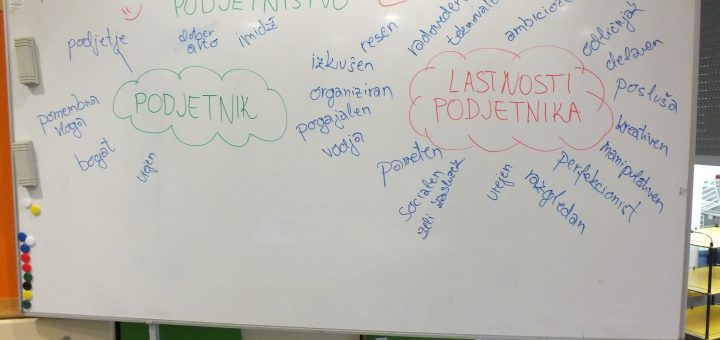 PODJETNIŠTVO
podjetje
dober
avto
imidž
pomembna
vloga
PODJETNIK
bogat
urejen
izkušen
resen
organiziran
pogajalen
vodja
radoveden
ambiciozen
odličnjak
delaven
posluša
kreativen
manipulativen
LASTNOSTI
PODJETNIKA
pameten
socialen
želi zaslužek
urejen
razgledan
perfekcionist